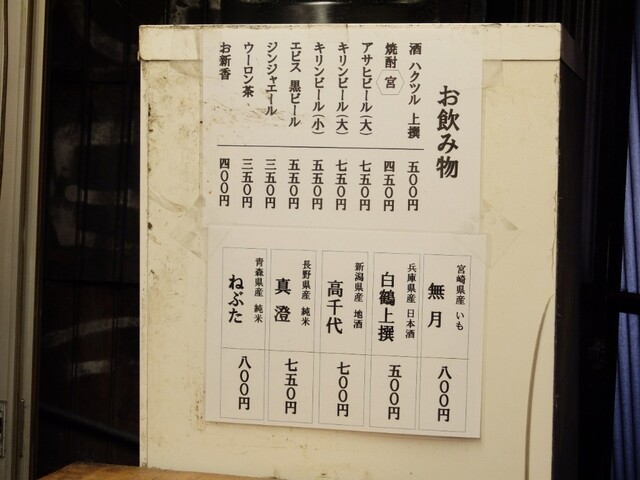 お飲み物
酒 ハクツル 上撰 五〇〇円
焼酎 宮 四五〇円
アサヒビール(大) 七五〇円
キリンビール(大) 七五〇円
キリンビール(小) 五五〇円
エビス 黒ビール 五五〇円
ジンジャエール 三五〇円
ウーロン茶 三五〇円
お新香 四〇〇円
宮崎県産 いも
無月 八〇〇円
兵庫県産 日本酒
白鶴上撰 五〇〇円
新潟県産 地酒
高千代 七〇〇円
長野県産 純米
真澄 七五〇円
青森県産 純米
ねぶた 八〇〇円